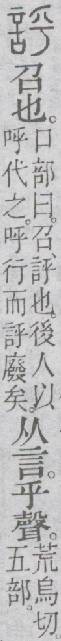 𧦝
召也。
口部曰。召、𧦝也。後人以
呼代之。呼行而𧦝廢矣。
从言。乎聲。
荒烏切。
五部。